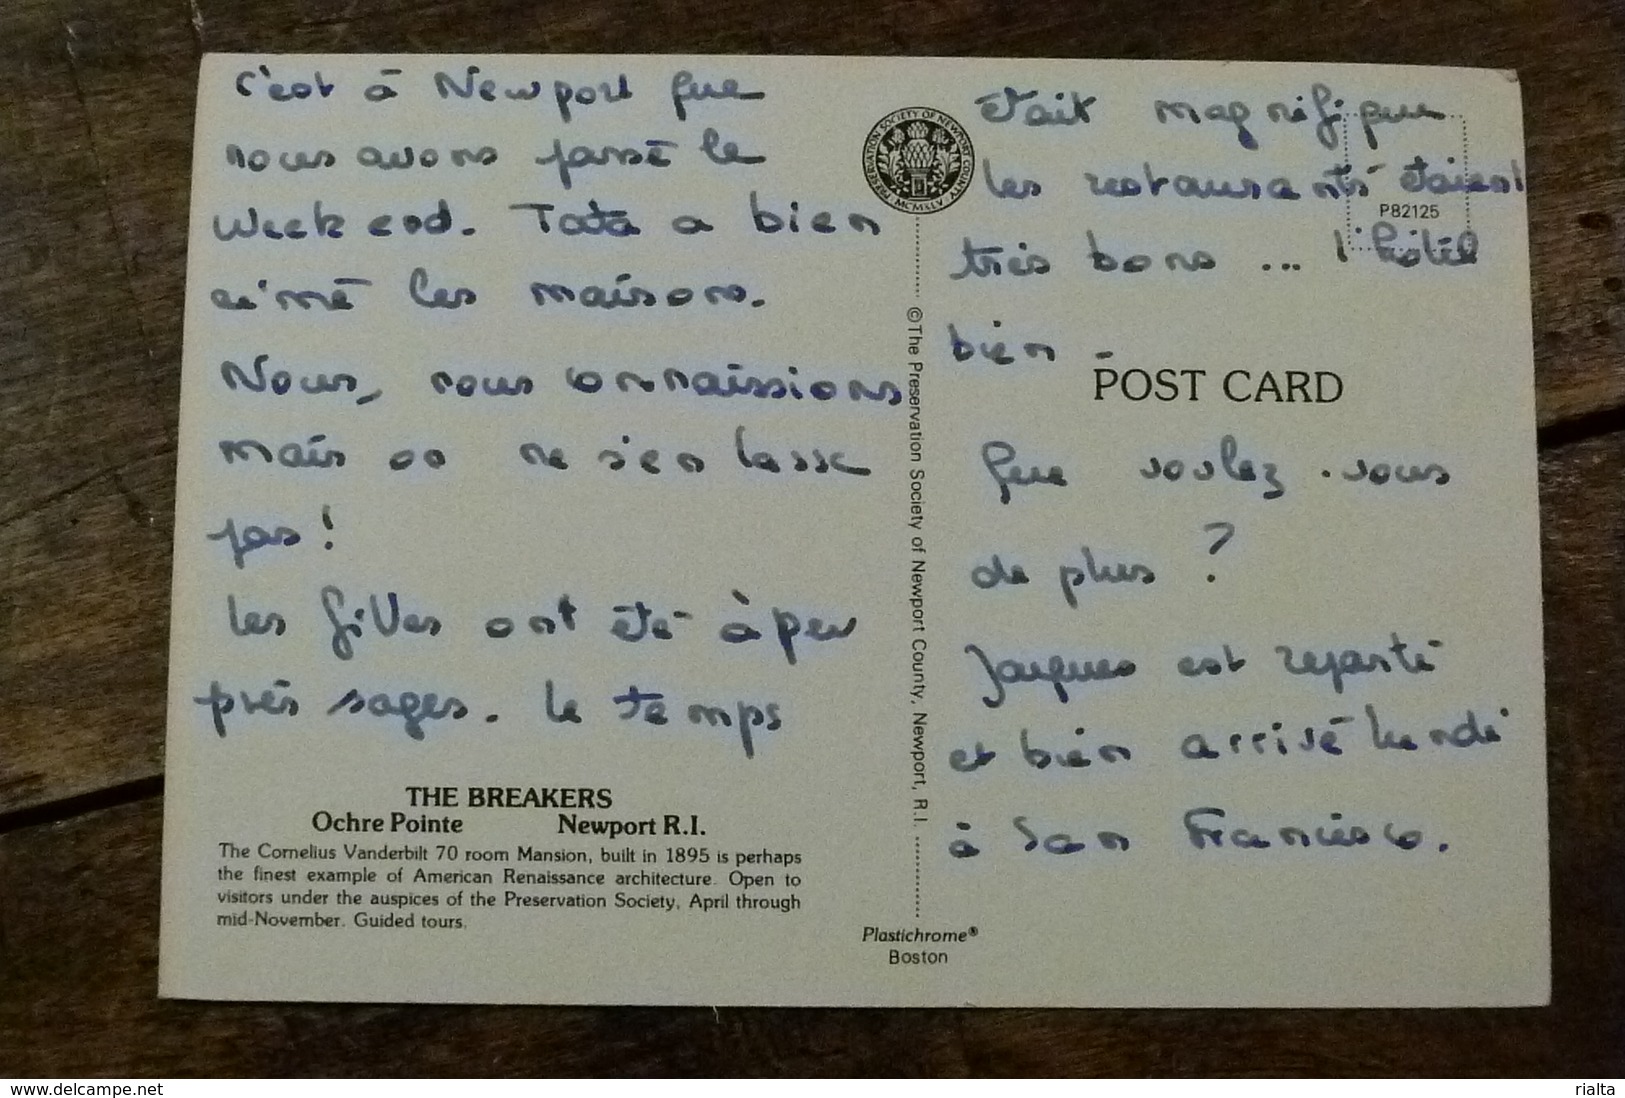 c'est à Newport que
nous avons passé le
week end. Tata a bien
aimé les maisons.
Nous, nous connaissions
mais on ne s'en lasse
pas!
Les filles ont été à peu
près sages. Le temps
THE BREAKERS
Ochre Pointe Newport R.I.
The Cornelius Vanderbilt 70 room Mansion, built in 1895 is perhaps
the finest example of American Renaissance architecture. Open to
visitors under the auspices of the Preservation Society, April through
mid-November. Guided tours.
PRESERVATION SOCIETY OF NEWPORT COUNTY
MCMXLV
©The Preservation Society of Newport County, Newport, R.I.
Plastichrome®
Boston
était magnifique
les restaurants étaient
P82125
très bons ... l'hôtel
bien
POST CARD
Que voulez-vous
de plus ?
Jacques est reparti
et bien arrivé lundi
à San Francisco.
www.delcampe.net
rialta